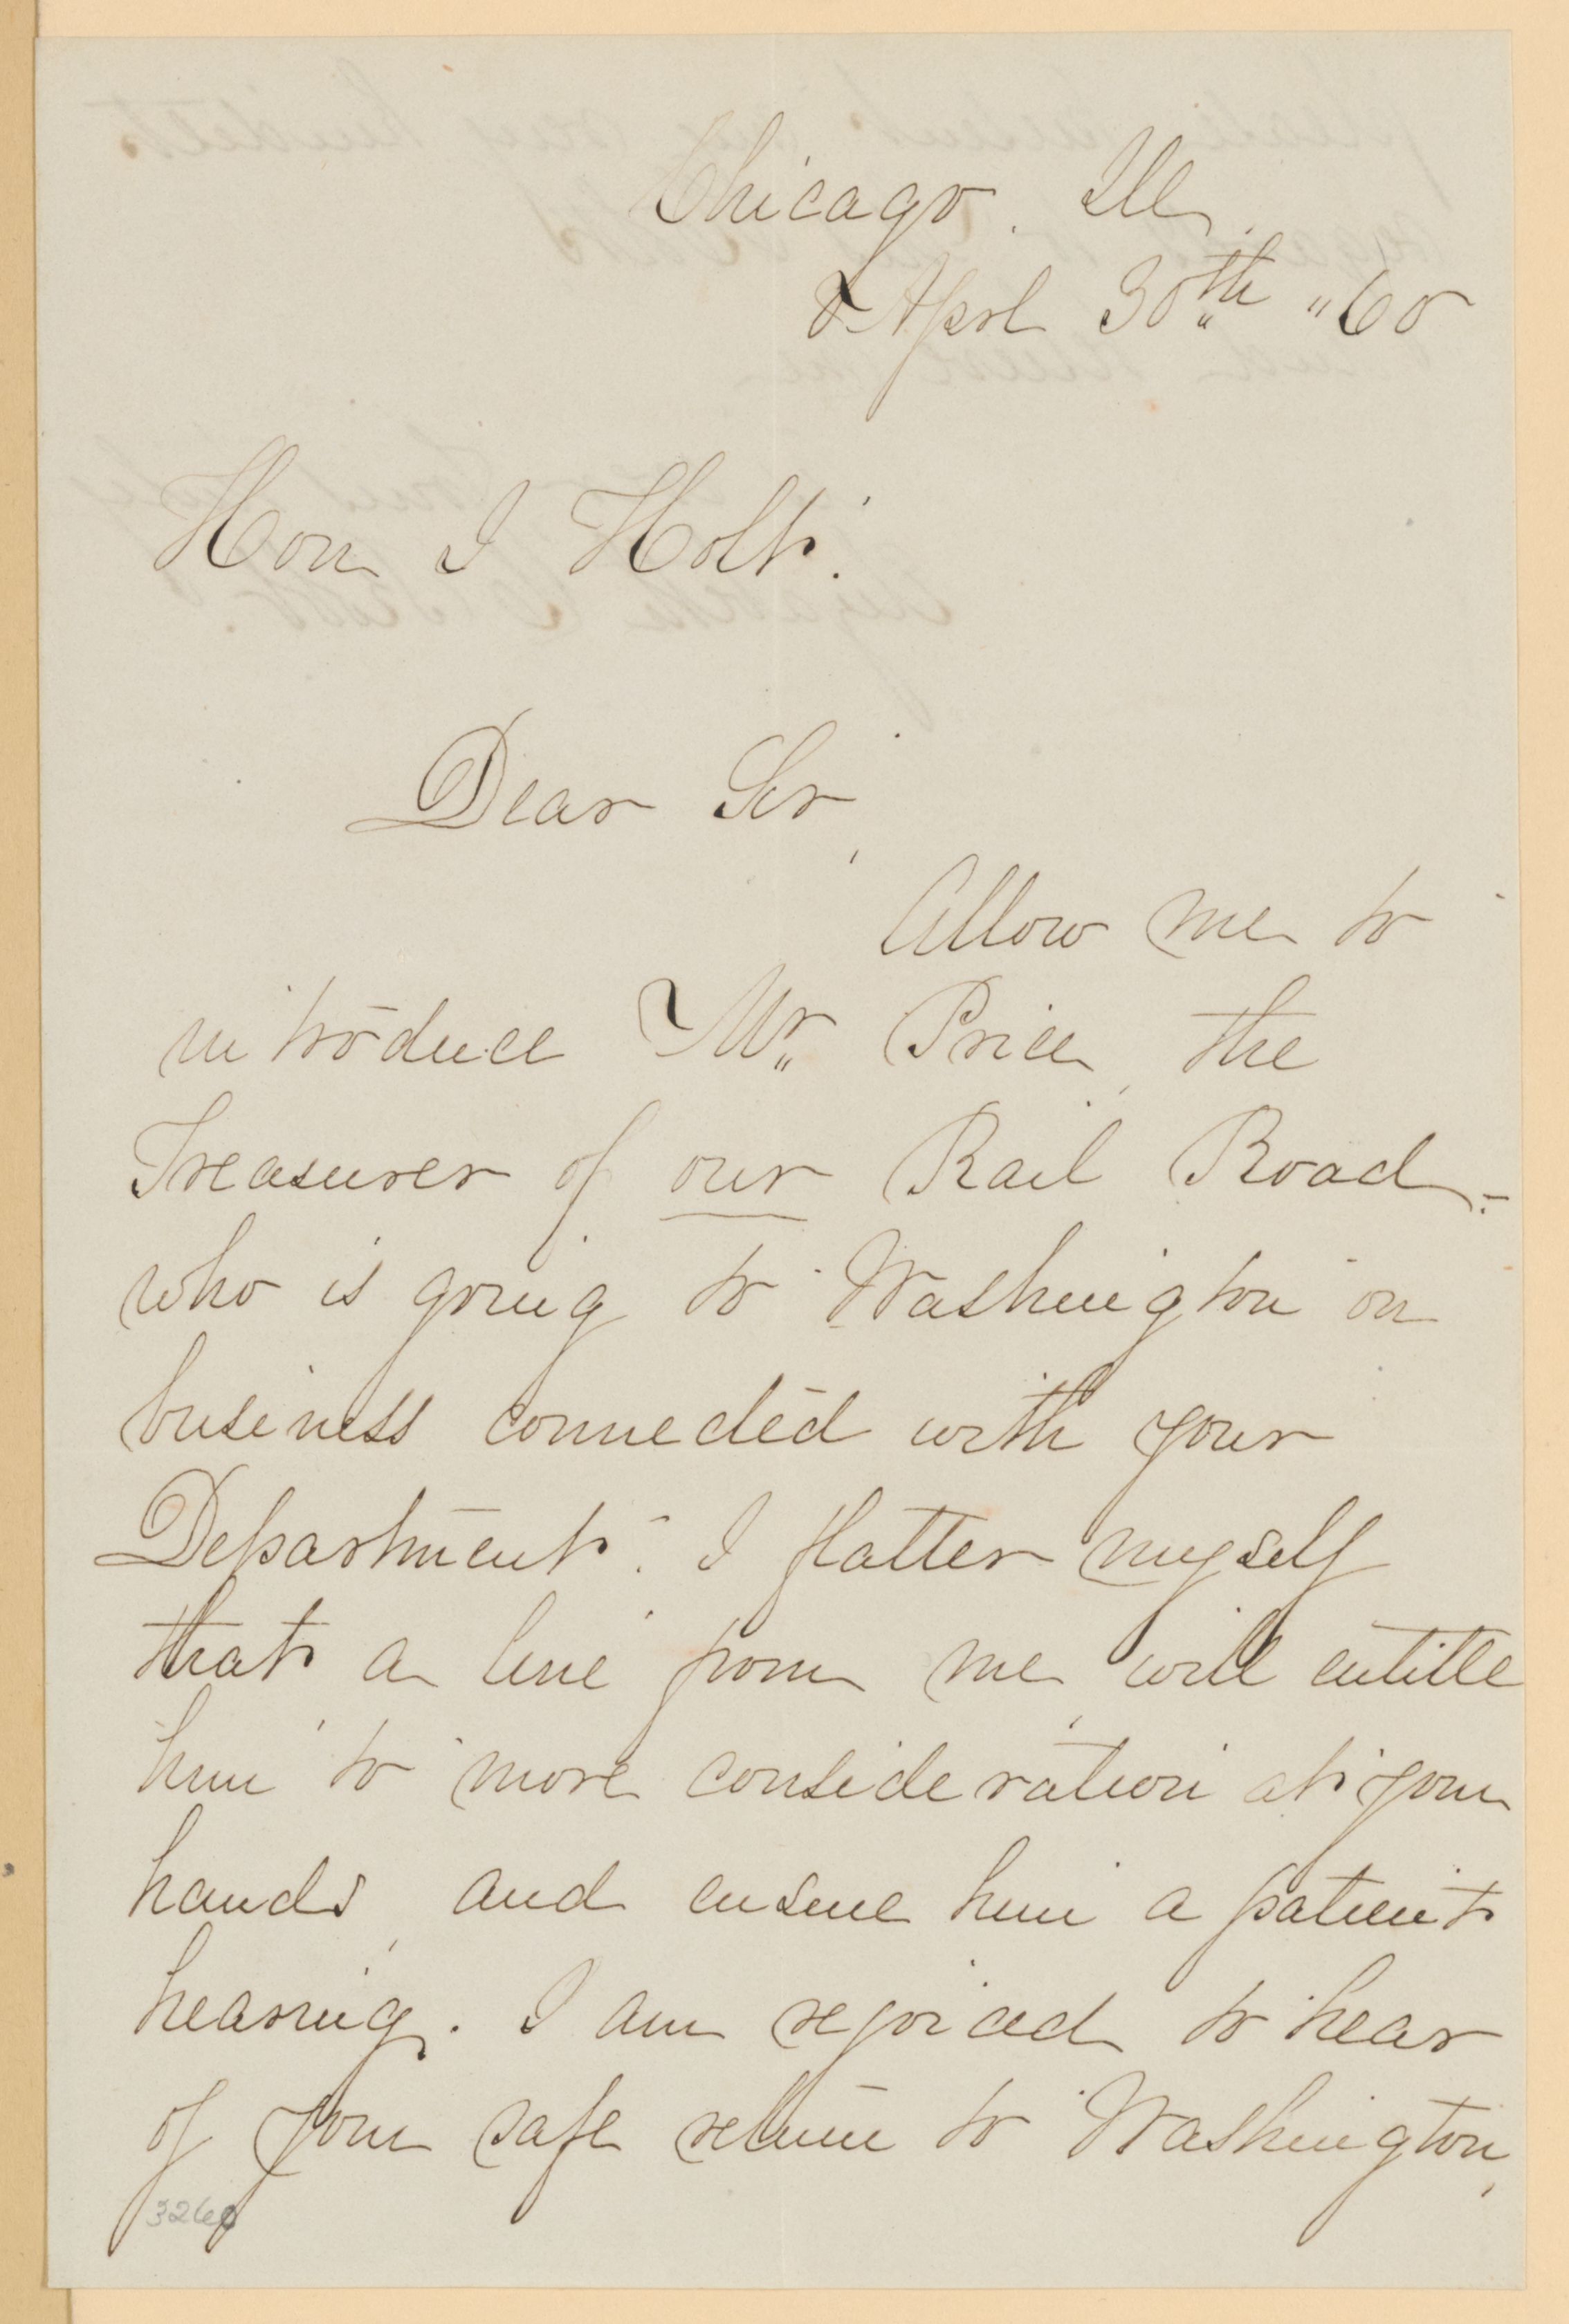 Chicago. Ill.
April 30th "60
Hon J Holt.
Dear Sir,
Allow me to
introduce Mr. Price, the
Treasurer of our Rail Road.-
who is going to Washington on
business connected with your
Department. I flatter myself
that a line from me will entitle
him to more consideration at your
hands, and ensure him a patient
hearing. I am rejoiced to hear
of your safe return to Washington,